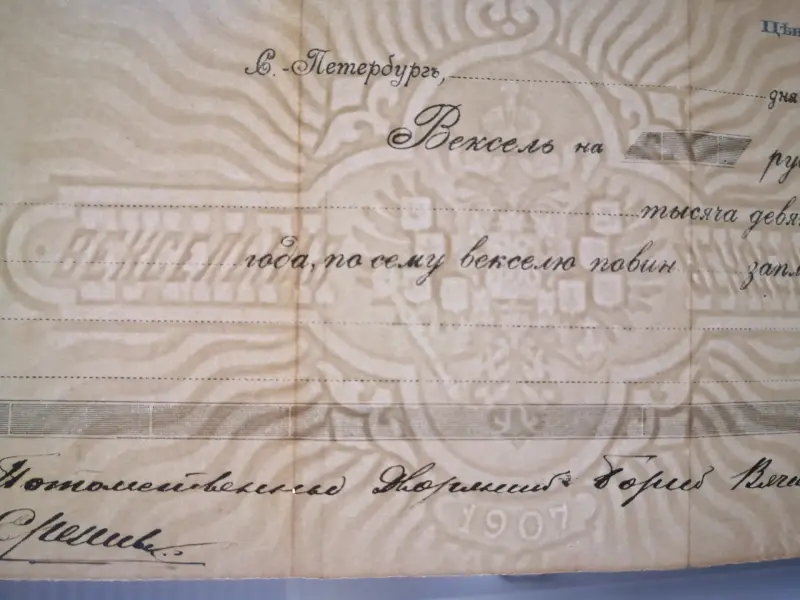 Цѣн
С.-Петербургъ,
дня
Вексель на руб
тысяча девя
года, по сему векселю повин запл
ВЕКСЕЛЬНАЯ
Потомственный Дворянинъ Борисъ Вяче
1907